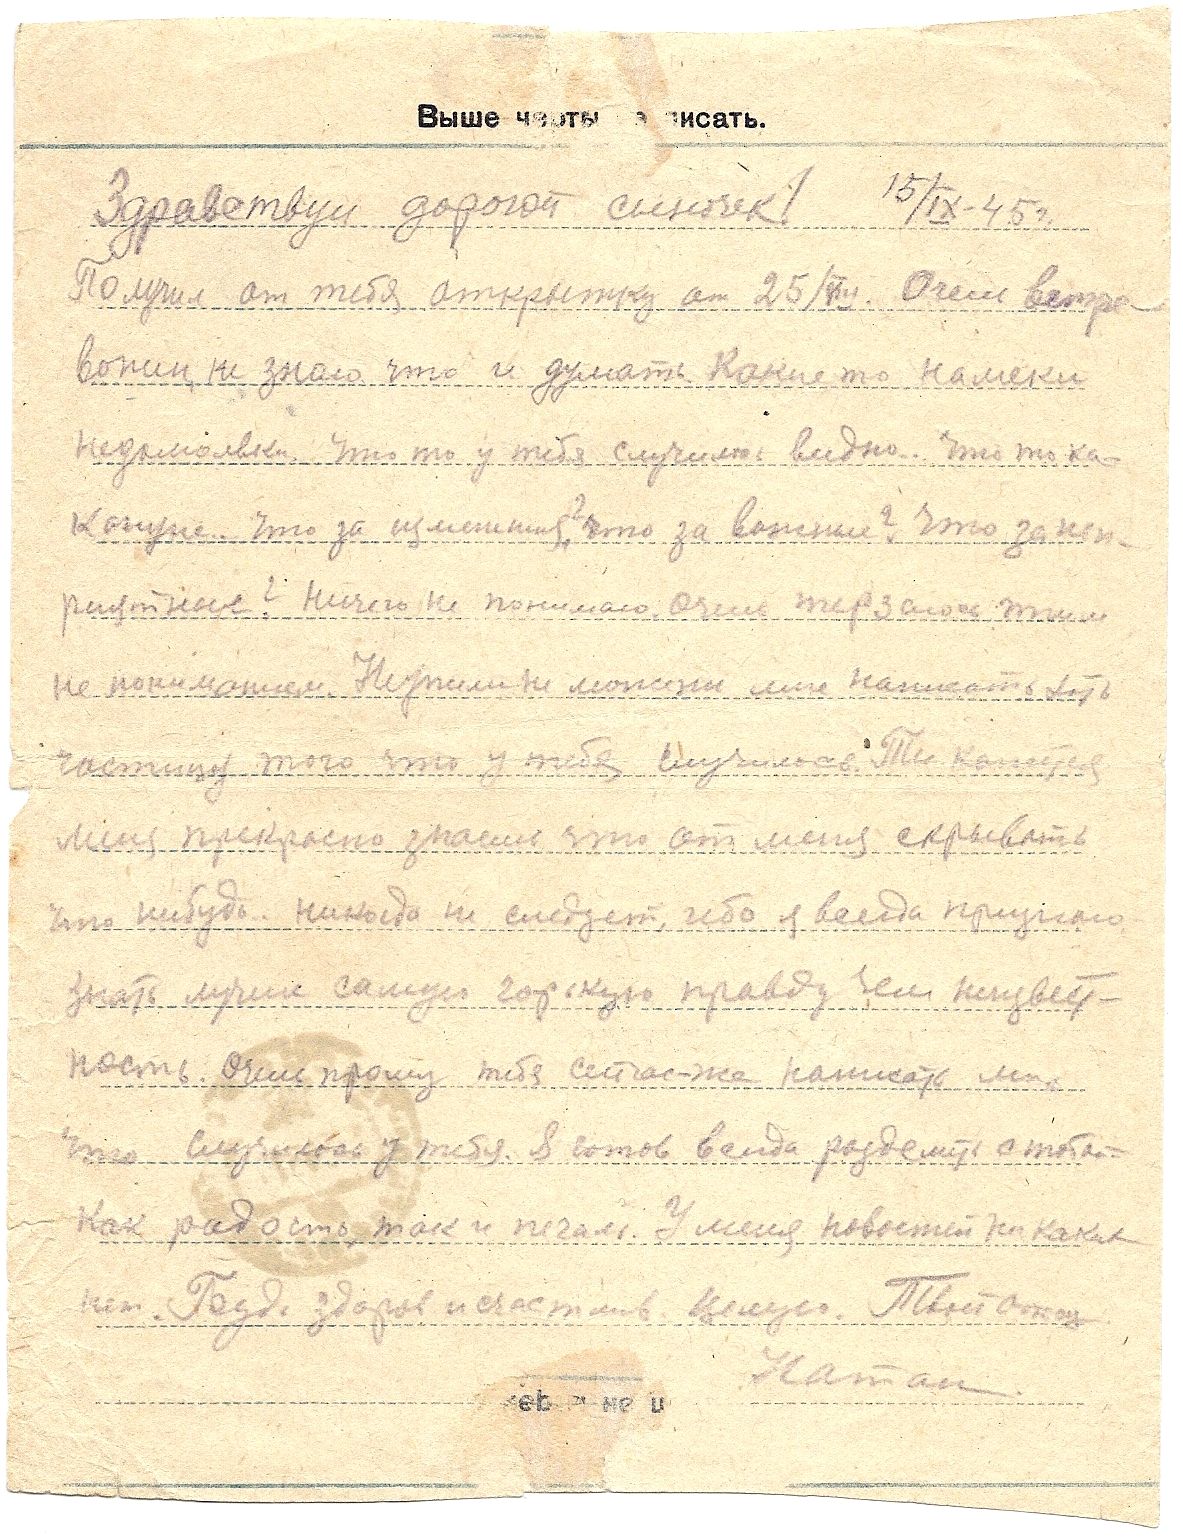 Выше черты не писать.
Здравствуй дорогой сыночек! 15/IX-45г.
Получил от тебя открытку от 25/VIII. Очень встре
вожен, не знаю что и думать. Какие то намеки
недомолвки. Что то у тебя случилось видно.. Что то на-
кануне.. Что за изменения? что за важные? Что за неп-
риятные? Ничего не понимаю. Очень терзаюсь этим
не пониманием. Неужели не можешь мне написать хоть
частицу того что у тебя случилось. Ты кажется
меня прекрасно знаешь что от меня скрывать
что нибудь.. никогда не следует, ибо я всегда
знать лучше самую горькую правду чем неизвест-
ность. Очень прошу тебя сейчас-же написать мне
что случилось у тебя. Я готов всегда разделить с тобой
как радость, так и печаль. У меня новостей никаких
нет. Будь здоров и счастлив. Целую. Твой отец
Натан.